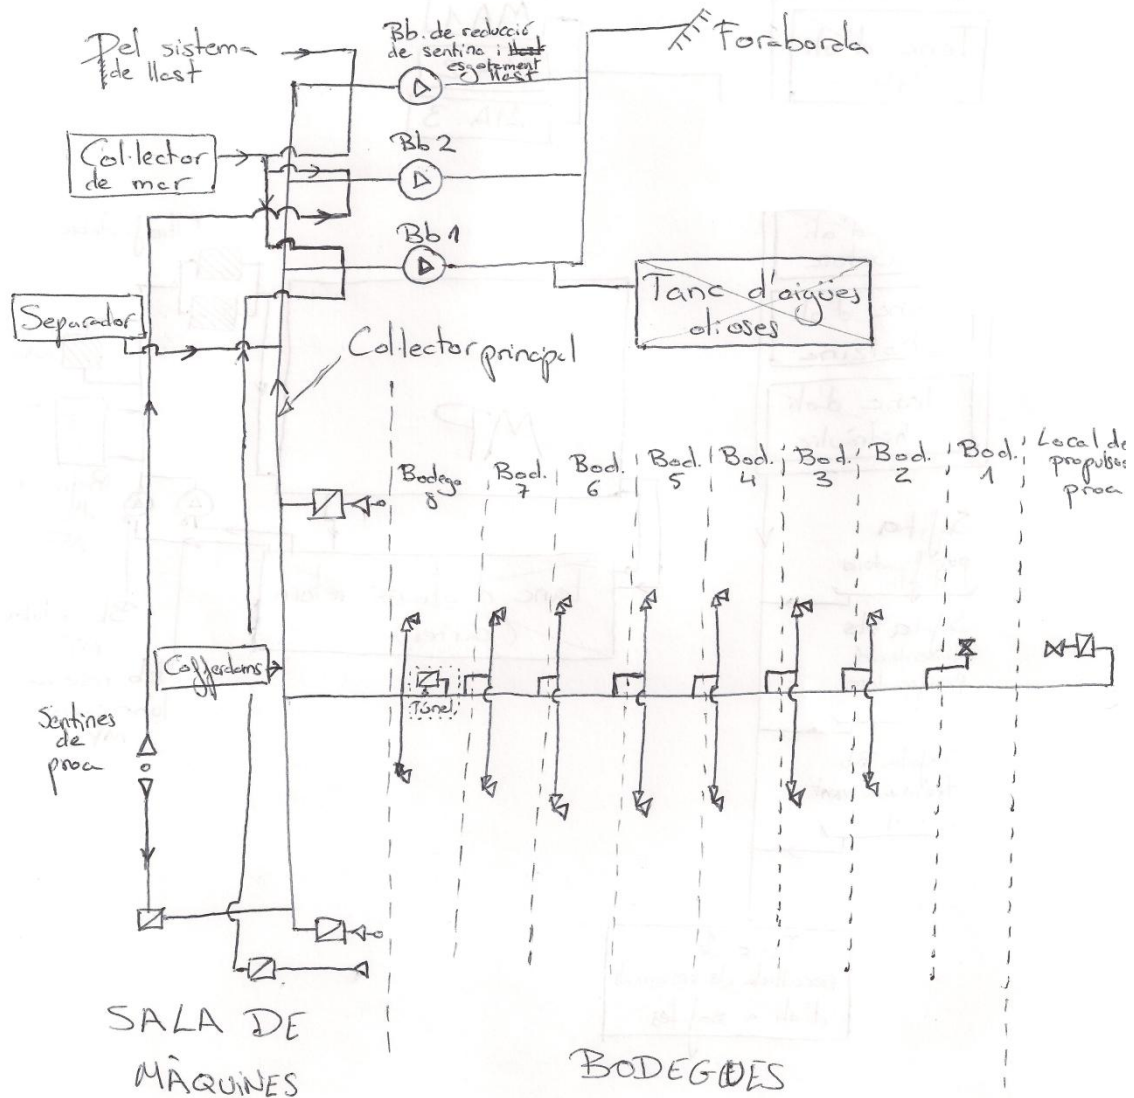 Del sistema
de llast
Bb. de reducció
de sentina i llast
esgotament
llast
Foraborda
Col·lector
de mar
Bb 2
Bb 1
Tanc d'aigües
olioses
Separador
Col·lector principal
Bodega
8
Bod.
7
Bod.
6
Bod.
5
Bod.
4
Bod.
3
Bod.
2
Bod.
1
Local de
propulsor
proa
Cofferdams
Túnel
Sentines
de
proa
SALA DE
MÀQUINES
BODEGUES